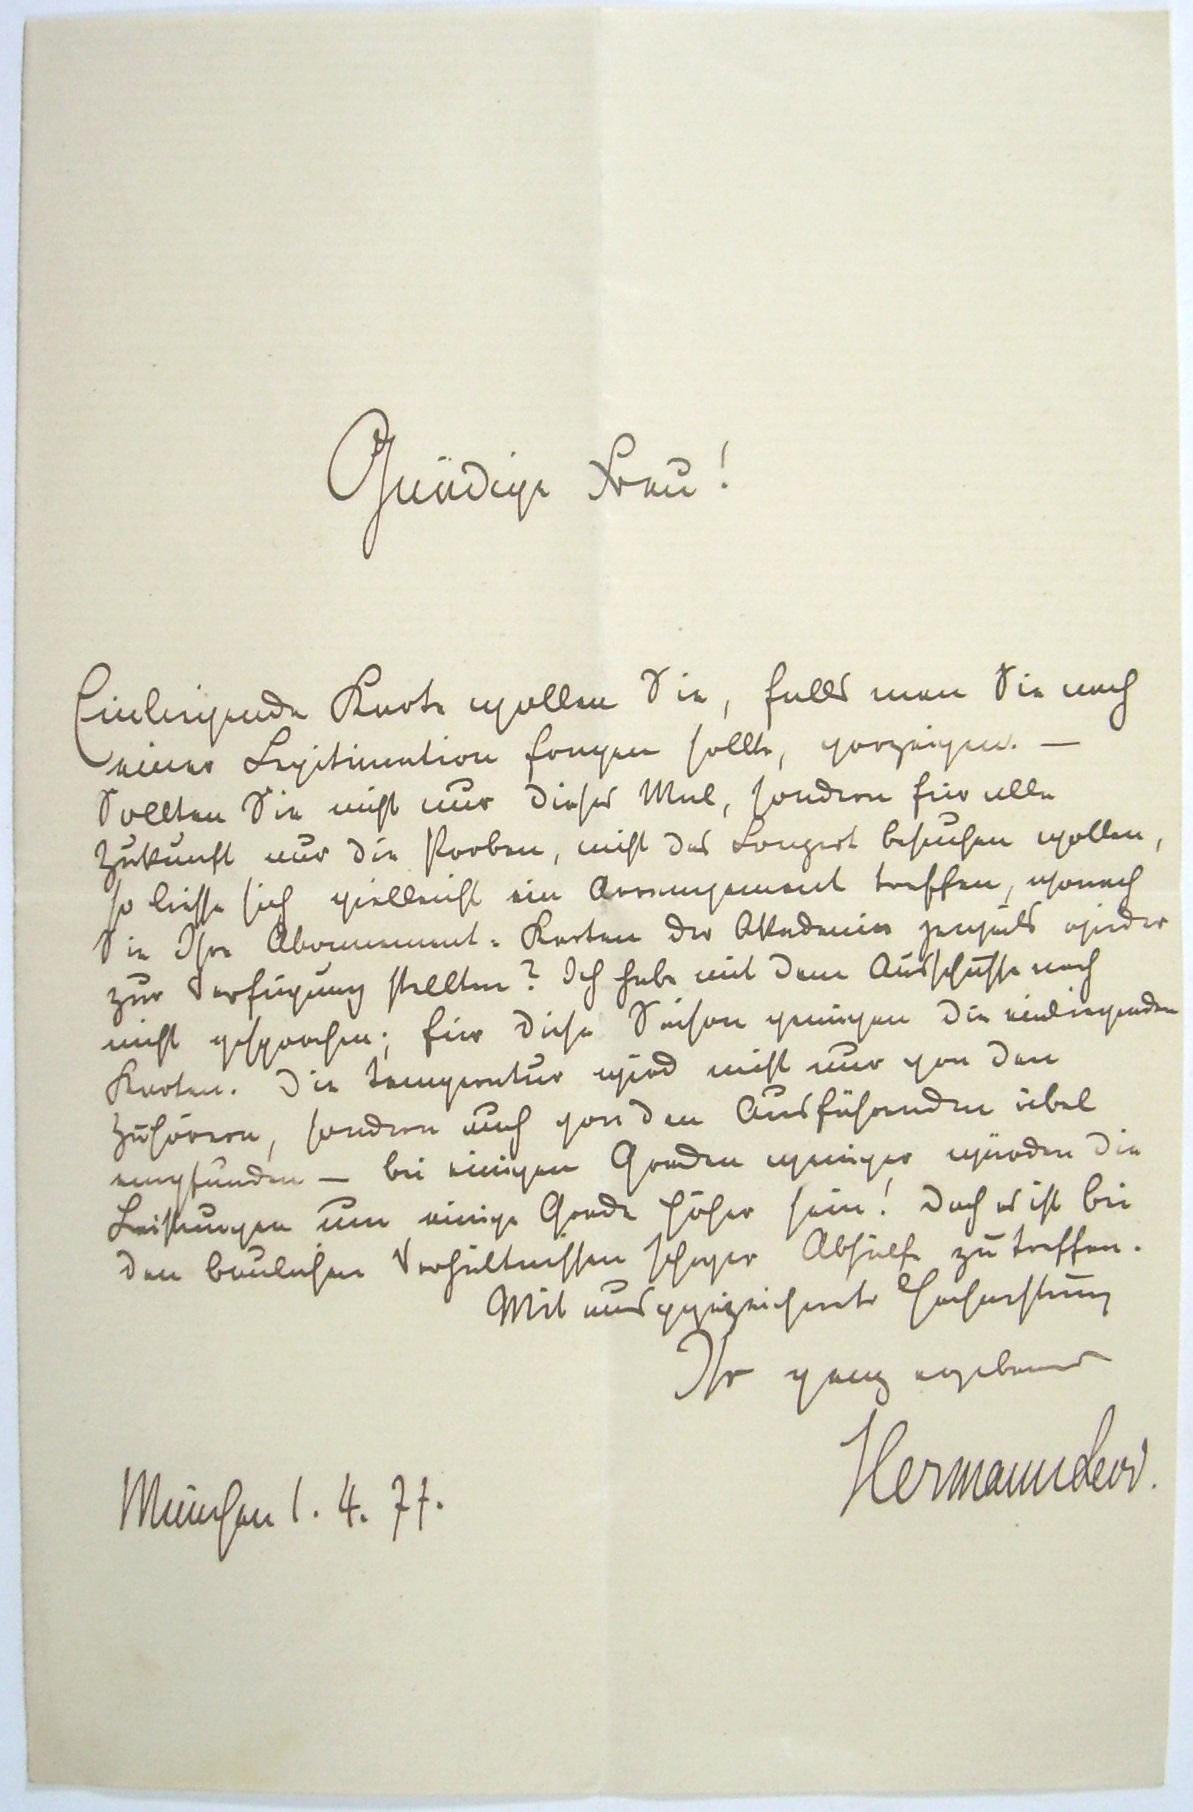 Gnädige Frau!
Einliegende Karte wollen Sie, falls man Sie nach
einer Legitimation fragen sollte, vorzeigen. —
Sollten Sie nicht nur dieses Mal, sondern für alle
Zukunft nur die Proben, nicht das Conzert besuchen wollen,
so liesse sich vielleicht ein Arrangement treffen, wonach
Sie Ihre Abonnement-Karten der Akademie jeweils wieder
zur Verfügung stellten? Ich habe mit dem Ausschusse noch
nicht gesprochen; für diese Saison genügen die einliegenden
Karten. Die Temperatur wird nicht nur von den
Zuhörern, sondern auch von den Ausführenden übel
empfunden — bei einigen Graden weniger würden die
Leistungen um einige Grade höher sein! Doch es ist bei
den baulichen Verhältnissen schwer Abhülfe zu treffen.
Mit ausgezeichneter Hochachtung
Ihr ganz ergebener
Hermann Levi.
München 1. 4. 77.